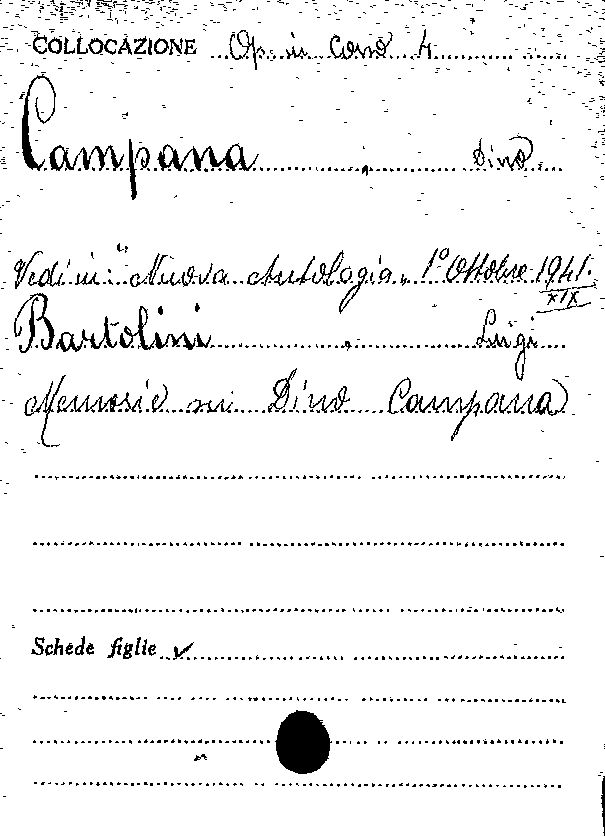 COLLOCAZIONE Op. in Corso 4
Campana, Dino.
Vedi in: "Nuova Antologia" 1° Ottobre 1941.
XIX
Bartolini, Luigi
Memorie su Dino Campana
Schede figlie ✓